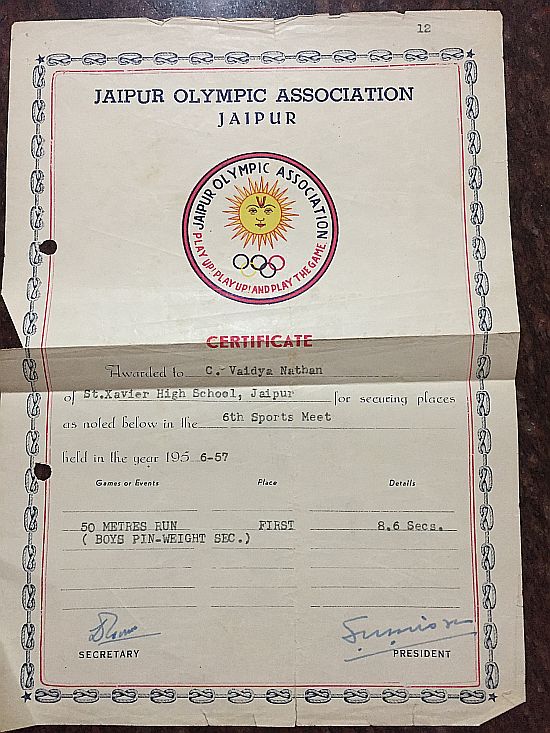 12
JAIPUR OLYMPIC ASSOCIATION
JAIPUR
JAIPUR OLYMPIC ASSOCIATION
PLAY UP! PLAY UP! AND PLAY THE GAME
CERTIFICATE
Awarded to C. Vaidya Nathan
of St.Xavier High School, Jaipur for securing places
as noted below in the 6th Sports Meet
held in the year 195 6-57
Games or Events Place Details
50 METRES RUN FIRST 8.6 Secs.
( BOYS PIN-WEIGHT SEC.)
SECRETARY PRESIDENT